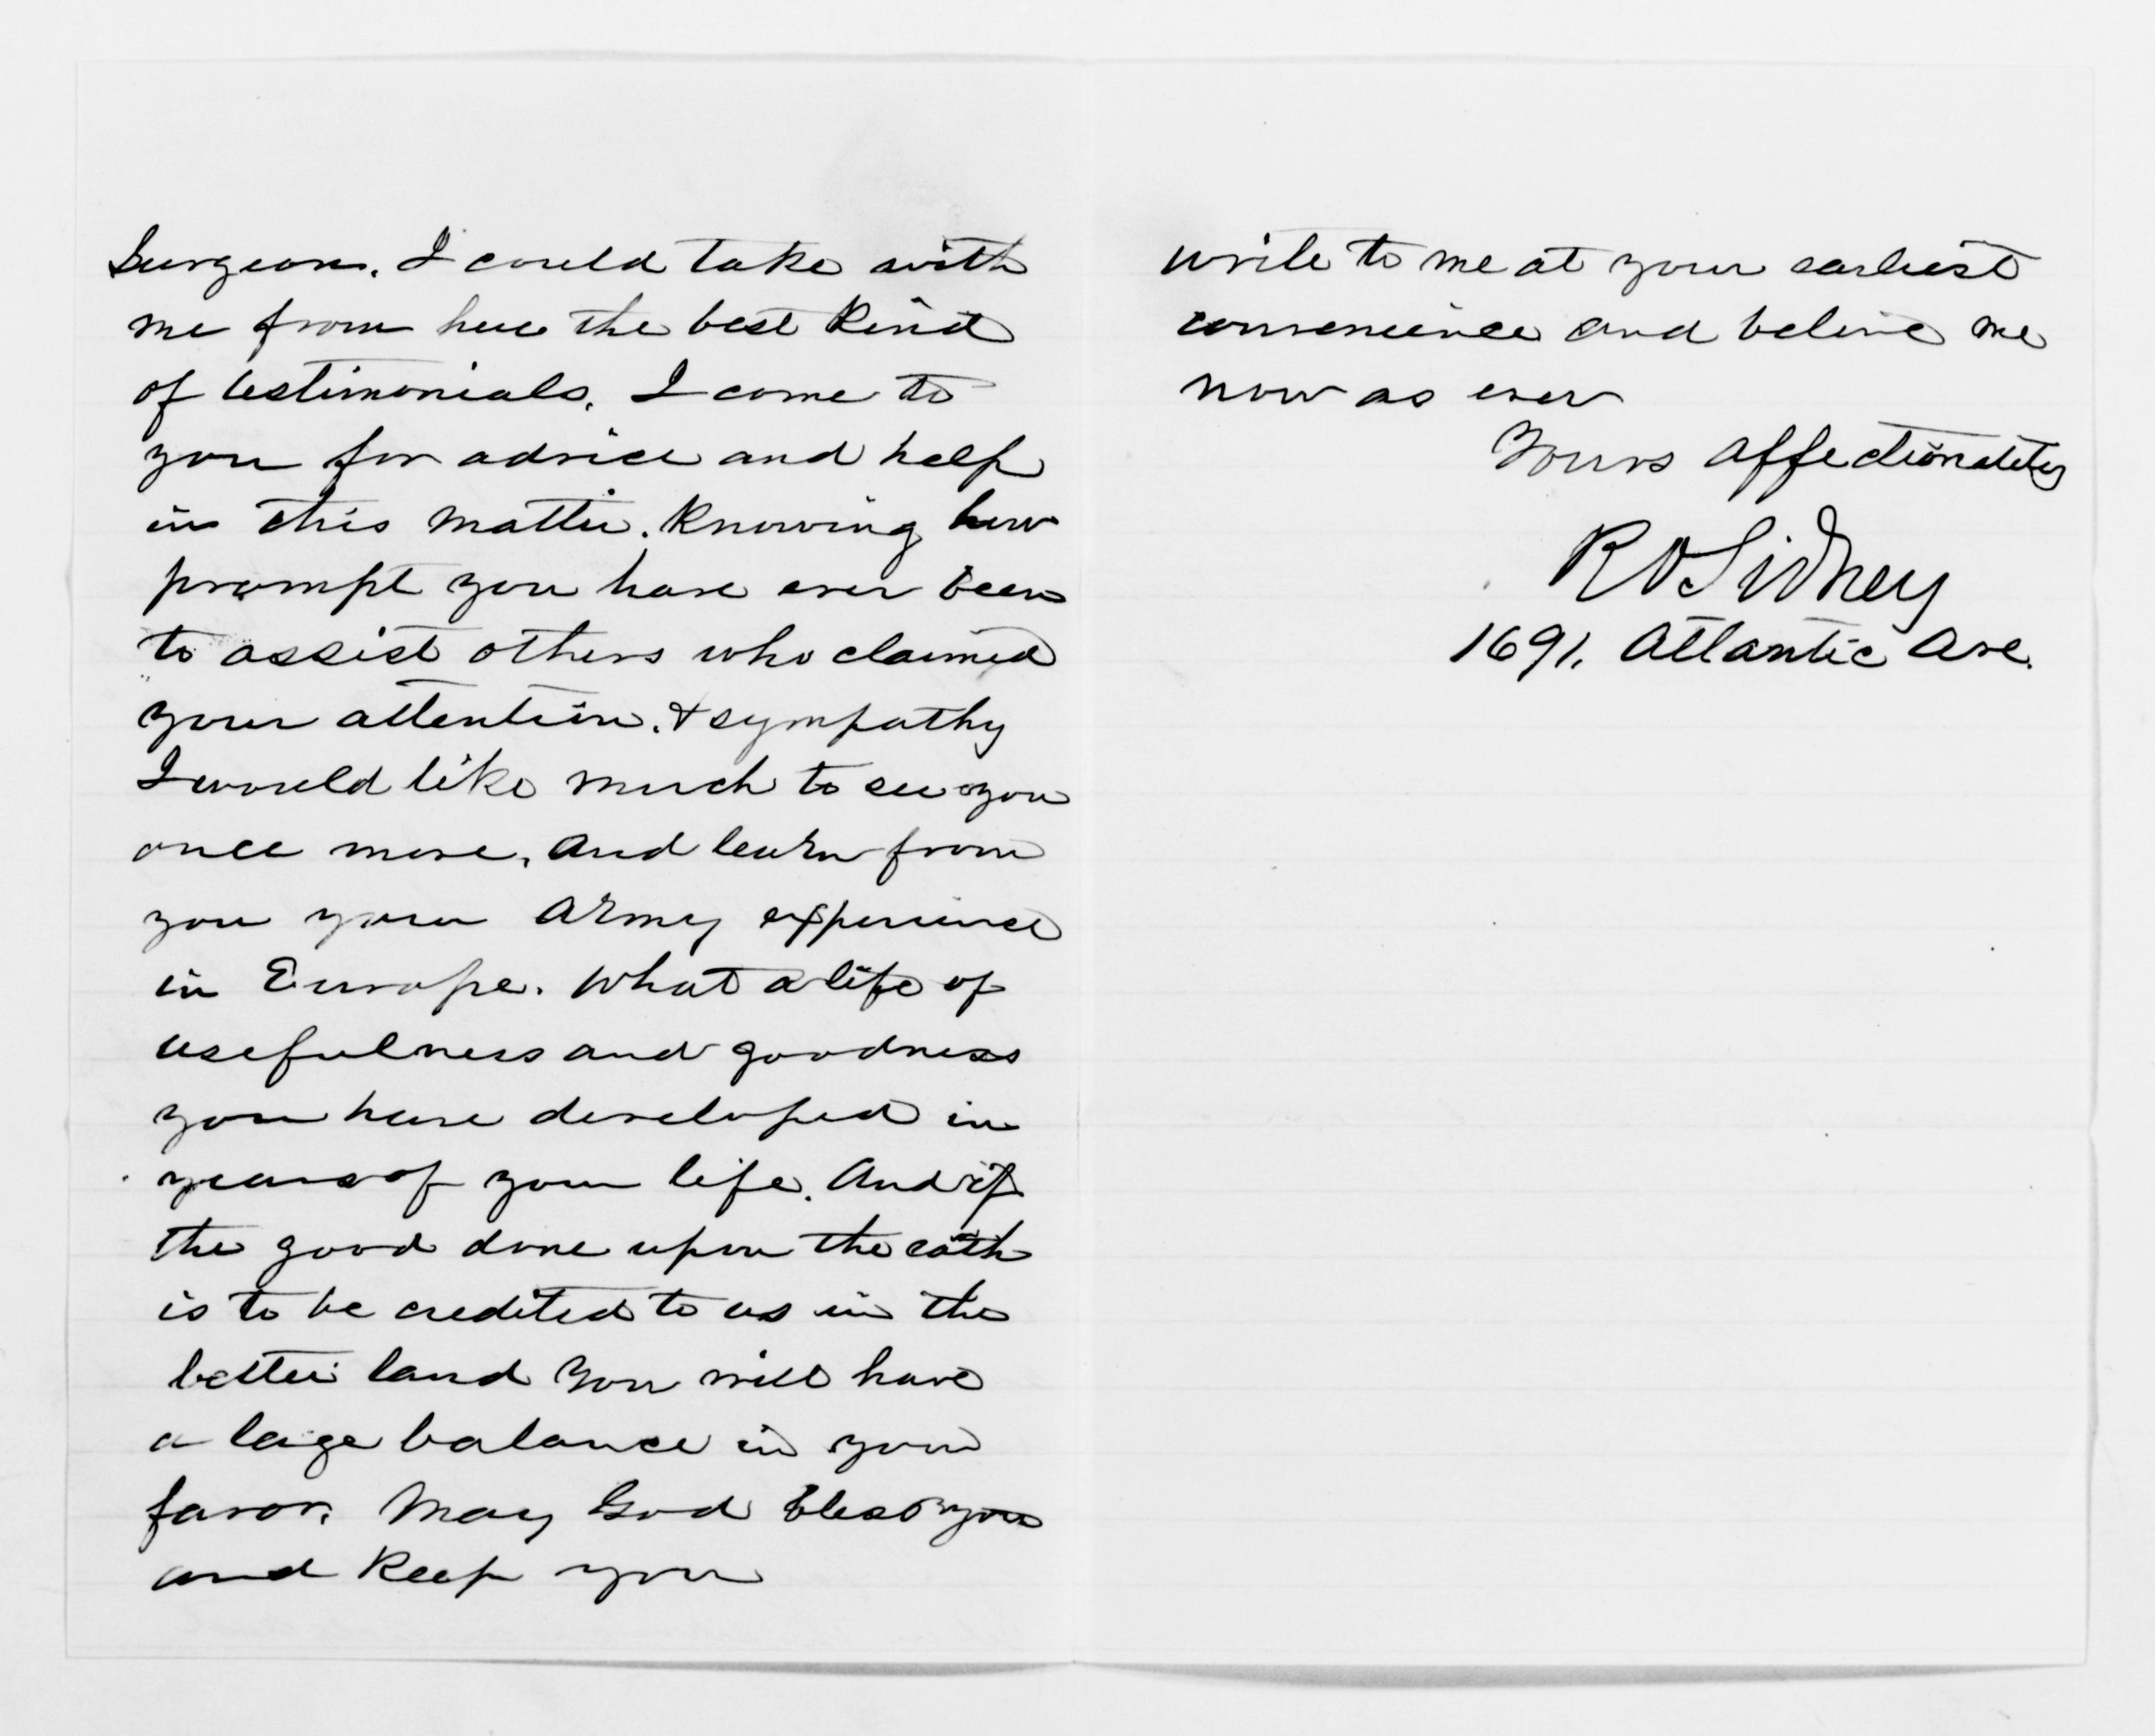 Surgeon. I could take with
me from here the best kind
of testimonials. I come to
you for advice and help
in this matter. Knowing how
prompt you have ever been
to assist others who claimed
your attention. & sympathy
I would like much to see you
once more. And learn from
you your Army experience
in Europe. What a life of
usefulness and goodness
you have developed in
years of your life. And if
the good done upon the eath
is to be credited to us in the
better land you will have
a large balance in your
favor. May God bless you
and keep you
write to me at your earliest
convenience and belive me
now as ever
Yours affectionately
R O Sidney
1691. Atlantic Ave.